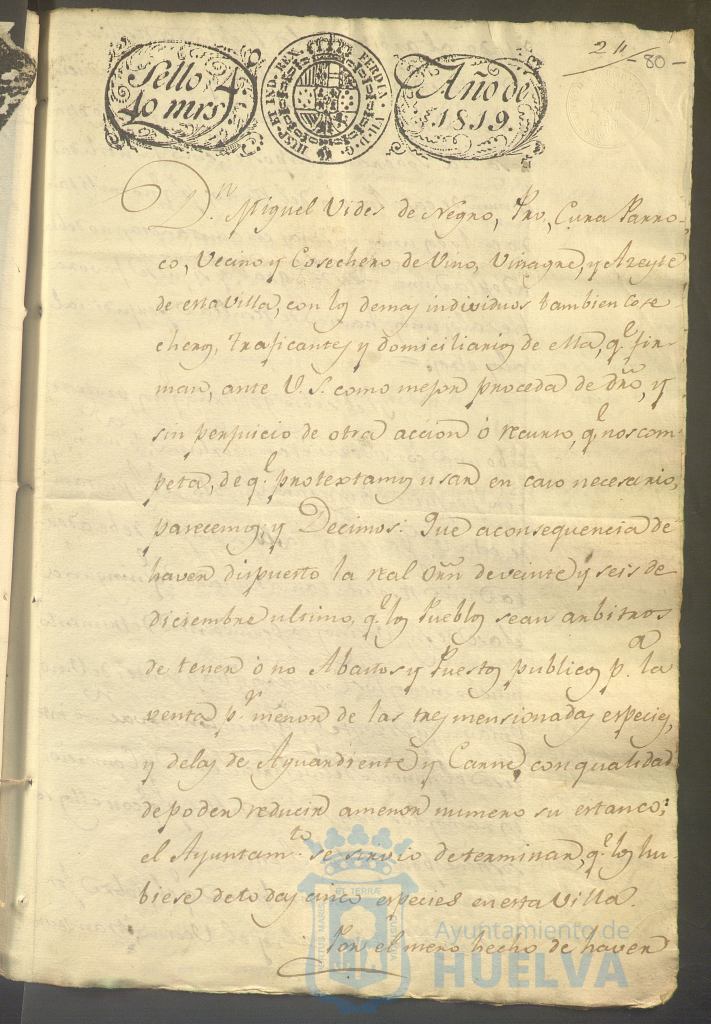 Sello 4º
40 mrs
HISP. ET IND. REX FERDIN. VII. D. G.
Año de
1819.
24
-80-
Dn. Miguel Vides de Negro, Pro, Cura Parro-
co, Vecino y Cosechero de Vino, Vinagre, y Azeyte
de esta Villa, con los demas individuos tambien Cose
cheros, traficantes y domiciliarios de ella, qe. fir-
man, ante V.S. como mejor proceda de dro, y
sin perjuicio de otra accion ó recurso, qe. nos com-
peta, de qe. protextamos usar en caso necesario,
parecemos, y Decimos: Que a consequencia de
haver dispuesto la real Orn de veinte y seis de
diciembre ultimo, qe. los Pueblos sean arbitros
de tener ó no Abastos y Puestos publicos pa. la
venta pr. menor de las tres mensionadas especies,
y de las de Aguardiente y Carne, con qualidad
de poder reducir a menor numero su estanco;
el Ayuntamto. se sirvio determinar, qe. los hu-
biese de todas cinco especies en esta Villa.
Por el mero hecho de haver
Ayuntamiento de
HUELVA